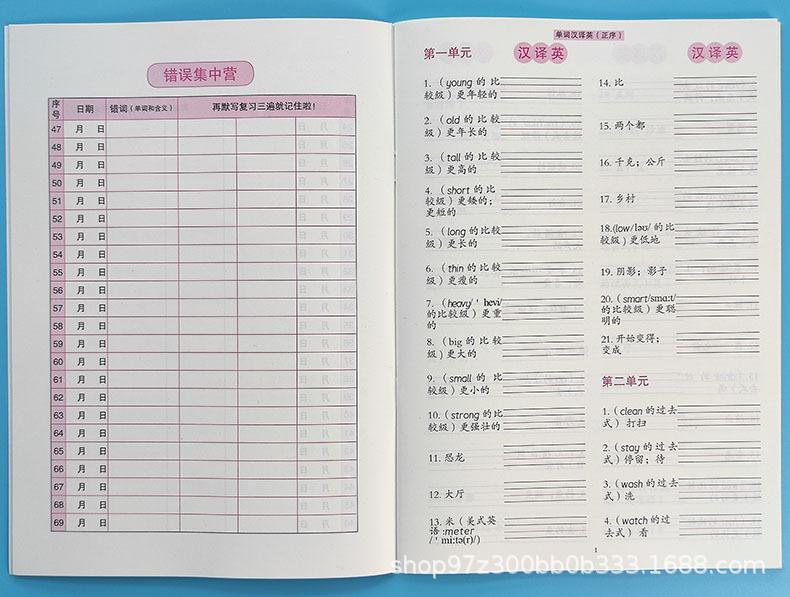 错误集中营
序号 日期 错词(单词和含义) 再默写复习三遍就记住啦!
47 月 日
48 月 日
49 月 日
50 月 日
51 月 日
52 月 日
53 月 日
54 月 日
55 月 日
56 月 日
57 月 日
58 月 日
59 月 日
60 月 日
61 月 日
62 月 日
63 月 日
64 月 日
65 月 日
66 月 日
67 月 日
68 月 日
69 月 日
单词汉译英(正序)
第一单元 汉译英
1.(young 的比
较级)更年轻的
2.(old 的比较
级)更年长的
3.(tall 的比较
级)更高的
4.(short 的比
较级)更矮的;
更短的
5.(long 的比较
级)更长的
6.(thin 的比较
级)更瘦的
7.(heavy/ˈhevi/
的比较级)更重
的
8.(big 的比较
级)更大的
9.(small 的比
较级)更小的
10.(strong 的比
较级)更强壮的
11. 恐龙
12. 大厅
13. 米(美式英
语:meter
/ˈmi:tə(r)/)
汉译英
14. 比
15. 两个都
16. 千克;公斤
17. 乡村
18.(low/ləʊ/ 的比
较级)更低地
19. 阴影;影子
20.(smart/smɑ:t/
的比较级)更聪
明的
21. 开始变得;
变成
第二单元
1.(clean 的过去
式)打扫
2.(stay 的过去
式)停留;待
3.(wash 的过去
式)洗
4.(watch 的过
去式)看
1
shop97z300bb0b333.1688.com